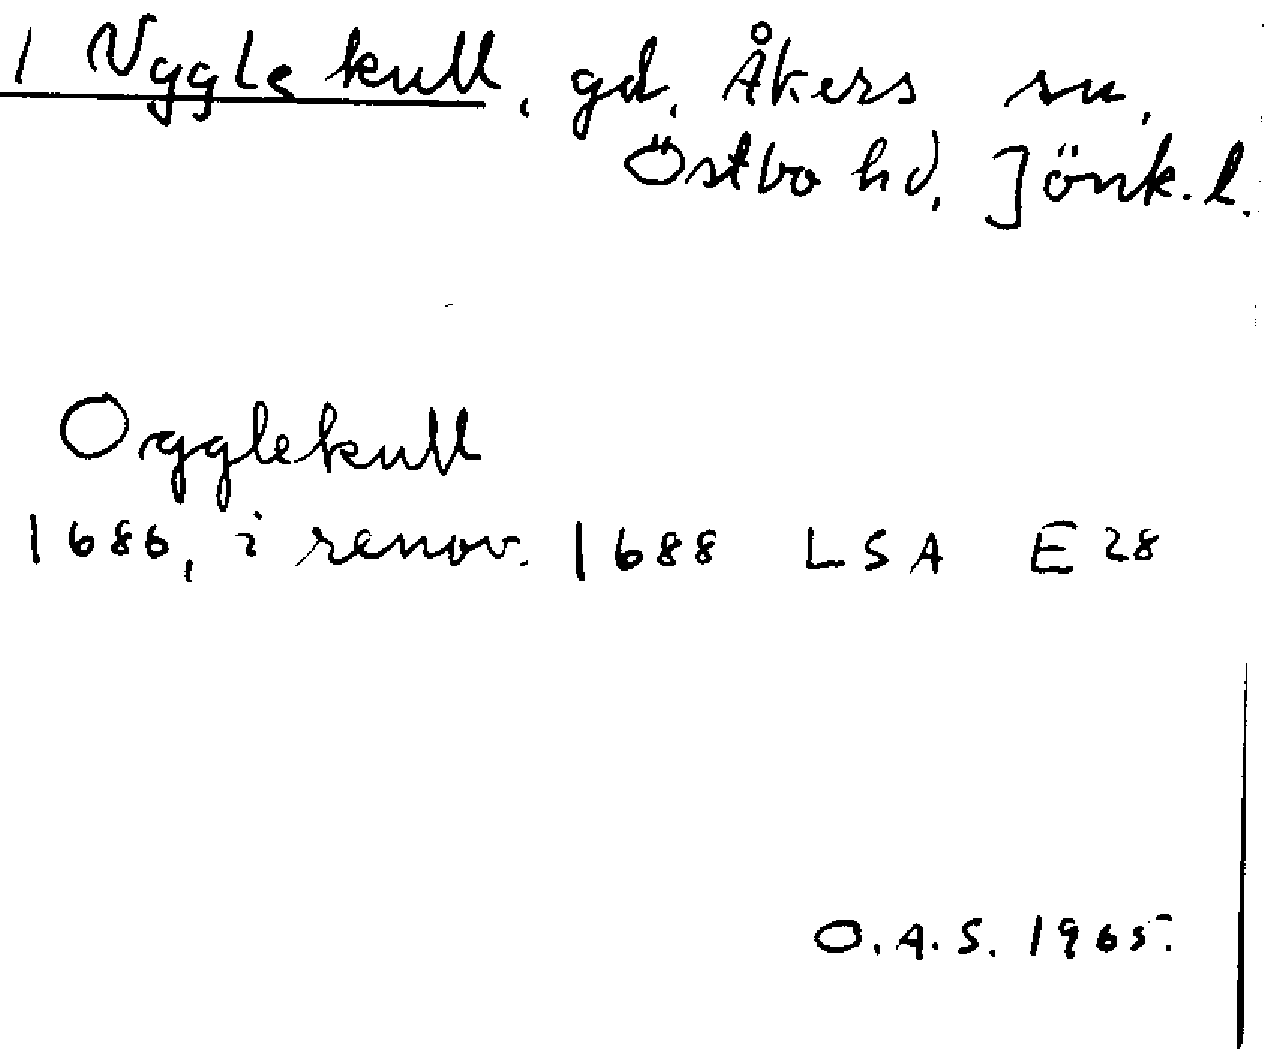 1 Ugglekull, gd. Åkers sn,
Östbo hd, Jönk. l.
Ogglekull
1686, i renov. 1688 LSA E 28
O.A.S. 1965.